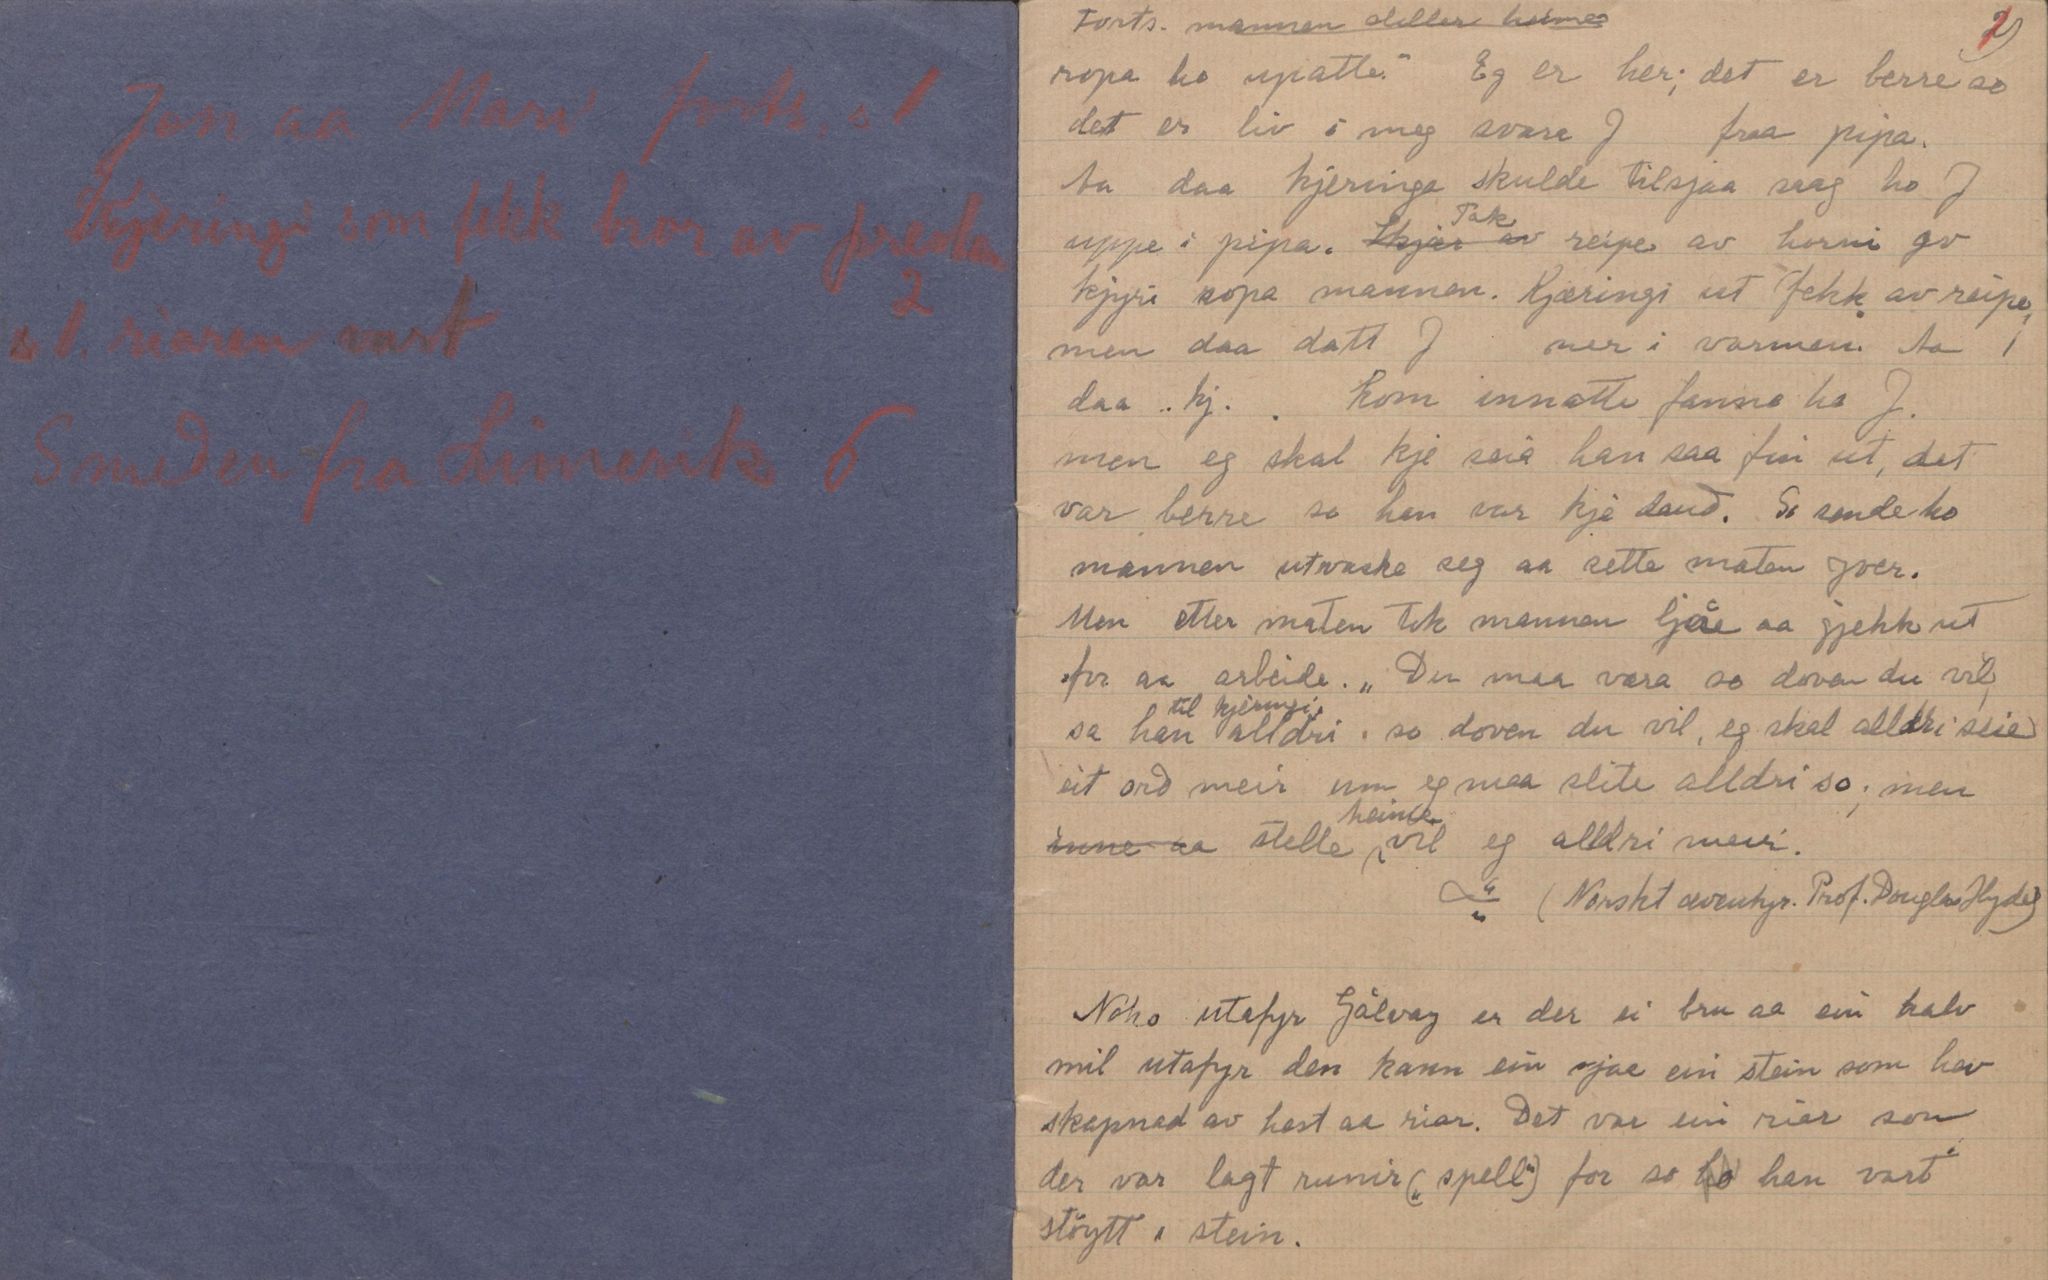 Jon aa Mari forts. s 1
Kjeringi som fekk bror av presten
2
s 1. riaren vart
Smeden fra Limerik 6
Forts. mannen steller heime
ropa ho upatte." Eg er her; det er berre so
det er liv i meg svara J fraa pipa.
Aa daa kjeringa skulde tilsjaa saag ho J
uppe i pipa. Skjer av Tak reipe av horni av
kjyri ropa mannen. Kjæringi ut fekk av reipe,
men daa datt J ner i varmen. Aa
daa kj. kom innatte fanna ho J.
men eg skal kje seia han saa fin ut, det
var berre so han var kje daud. So sende ho
mannen utvaske seg aa sette maten yver.
Men etter maten tok mannen ljåe aa gjekk ut
for aa arbeide. „Du maa vara so doven du vil,
sa han til kjeringi, alldri so doven du vil, eg skal alldri seie
eit ord meir um eg maa slite alldri so; men
inne aa stelle heime vil eg alldri meir.
(Norskt æventyr. Prof. Douglas Hyde)
Noko utafyr Gålvay er der ei bru aa ein halv
mil utafyr den kann ein sjaa ein stein som hev
skapnad av hest aa riar. Det var ein riar som
der var lagt runir („spell") for so ho han vart
stöytt i stein.